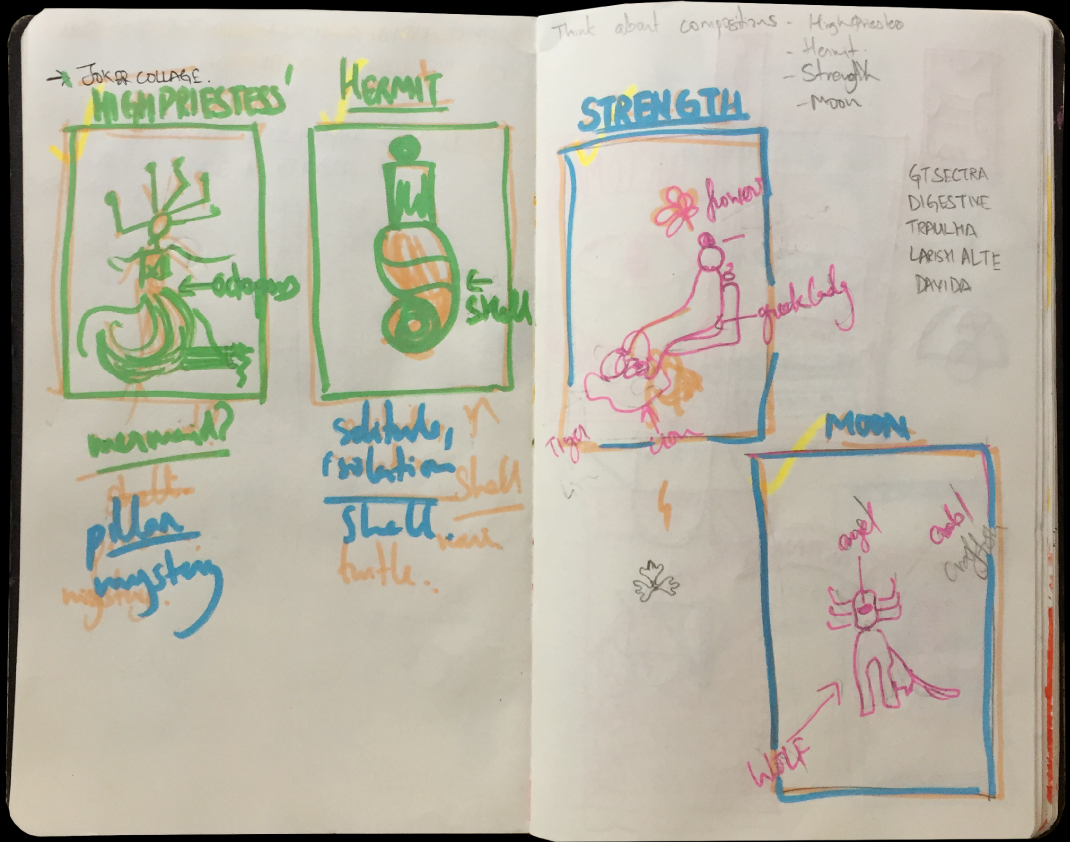 → JOKER COLLAGE.
HIGHPRIESTESS
← octopus
mermaid?
shell
pillar
mystery
HERMIT
← shell
solitude,
isolation
shell
Shell.
turtle.
Think about compositions - High Priestess
- Hermit
- Strength
- Moon
STRENGTH
flowers
greek lady
Tiger
lion
GT SECTRA
DIGESTIVE
LARISH ALTE
DAVIDA
MOON
angel
WOLF